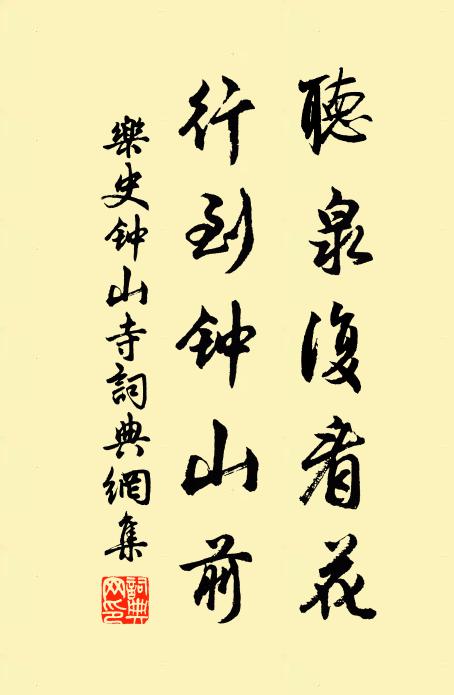 聽泉復看花
行到钟山前
樂史钟山寺詞典網集
詞典网印